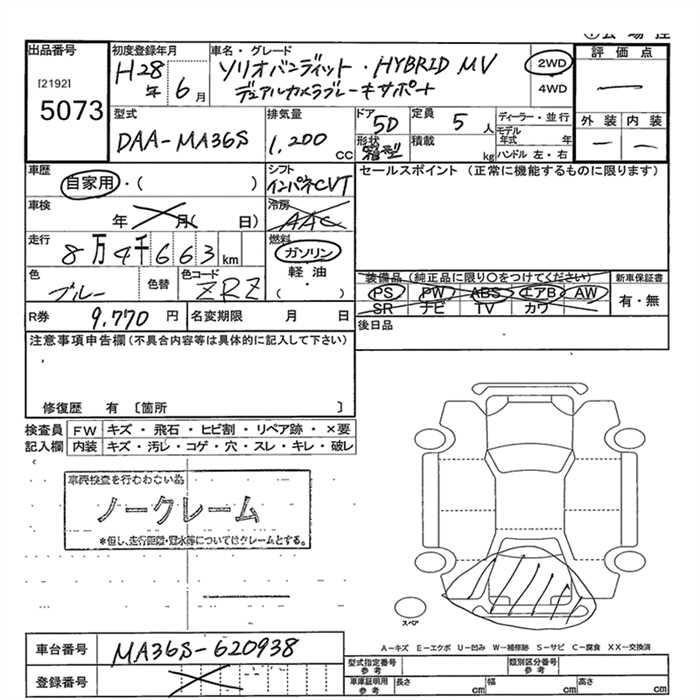 出品番号
[2192]
5073
初度登録年月
H28年 6月
車名・グレード
ソリオバンディット・HYBRID MV
デュアルカメラブレーキサポート
2WD
4WD
評価点
外装 内装
型式
DAA-MA36S
排気量
1,200 CC
ドア
5D
形状
箱型
定員
5 人
積載
kg
ディーラー・並行
モデル年式 年
ハンドル 左・右
車歴
自家用・( )
シフト
インパネCVT
セールスポイント (正常に機能するものに限ります)
車検
年 月( 日)
冷房
AAC
走行
8万4千663km
燃料
ガソリン
軽油
・( )
色
ブルー
色替
色コード
ZRZ
装備品 (純正品に限り〇をつけてください)
PS PW ABS エアB AW
SR ナビ TV カワ
新車保証書
有・無
R券
9,770 円
名変期限 月 日
後日品
注意事項申告欄(不具合内容等は具体的に記入して下さい)
修復歴 有 〔箇所 〕
検査員記入欄
FW キズ・飛石・ヒビ割・リペア跡・×要
内装 キズ・汚レ・コゲ・穴・スレ・キレ・破レ
車両検査を行わない為
ノークレーム
*但し、走行距離・冠水等についてはクレームとする。
スペア
A-キズ E-エクボ U-凹み W-補修跡 S-サビ C-腐食 XX-交換済
車台番号
MA36S-620938
登録番号
型式指定番号
参考
類別区分番号
参考
車庫証明用
参考
長さ cm
幅 cm
高さ cm